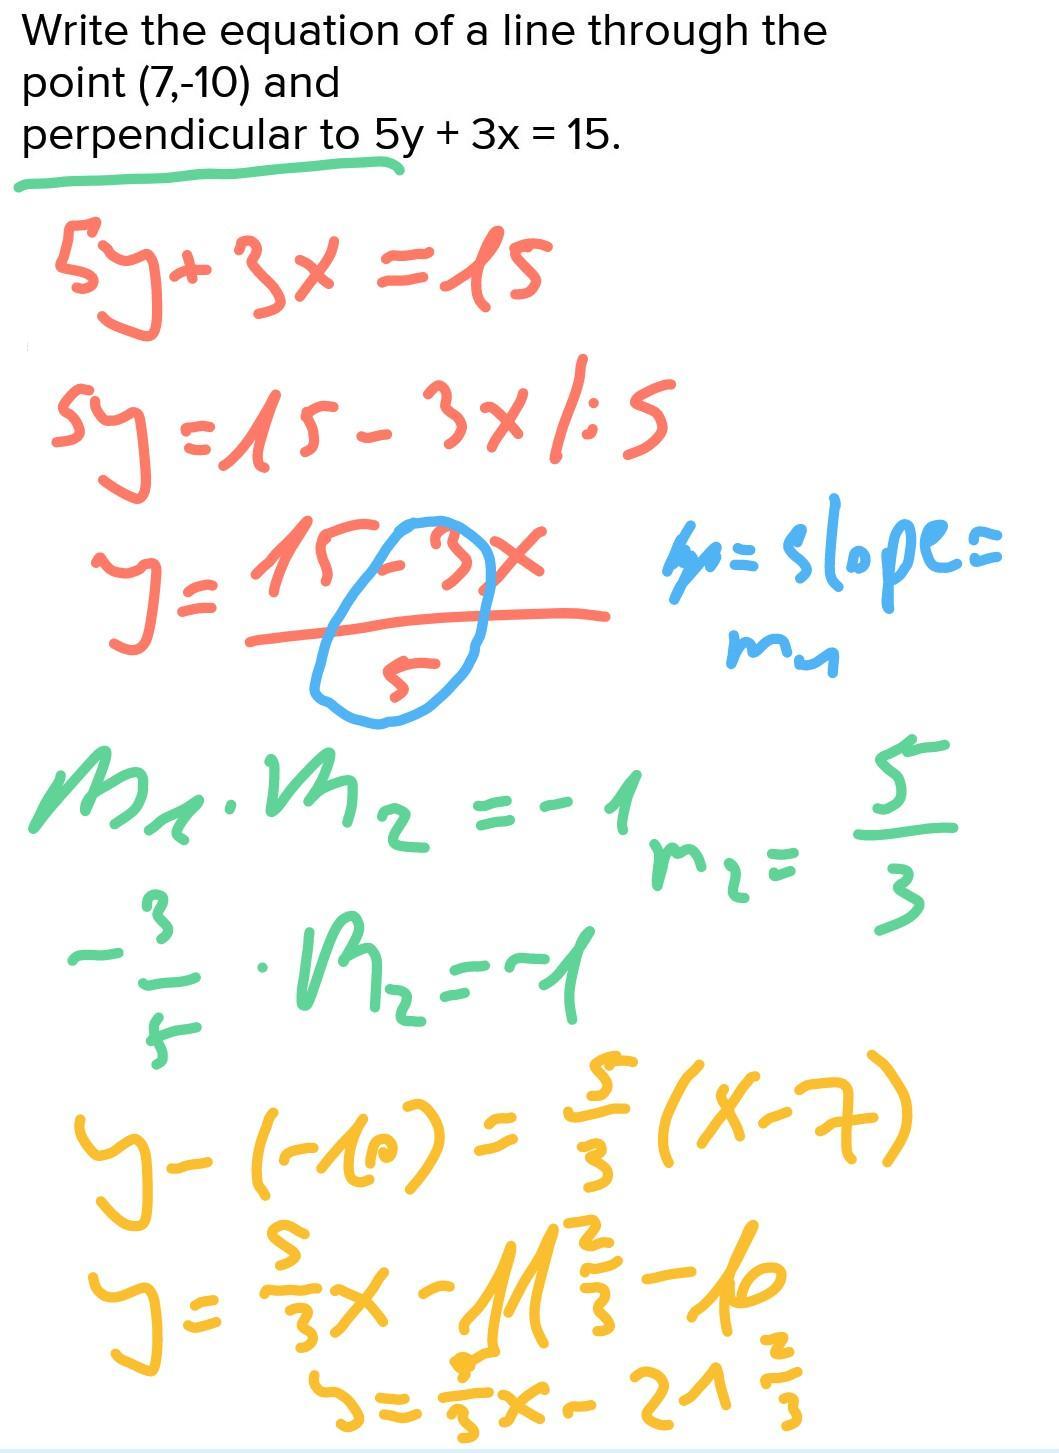 Write the equation of a line through the
point (7,-10) and
perpendicular to 5y + 3x = 15.
5y + 3x = 15
5y = 15 - 3x /:5
y = (15 - 3x)/5
= slope =
m₁
m₁ · m₂ = -1
m₂ = 5/3
-3/5 · m₂ = -1
y - (-10) = 5/3 (x - 7)
y = 5/3 x - 11 2/3 - 10
y = 5/3 x - 21 2/3